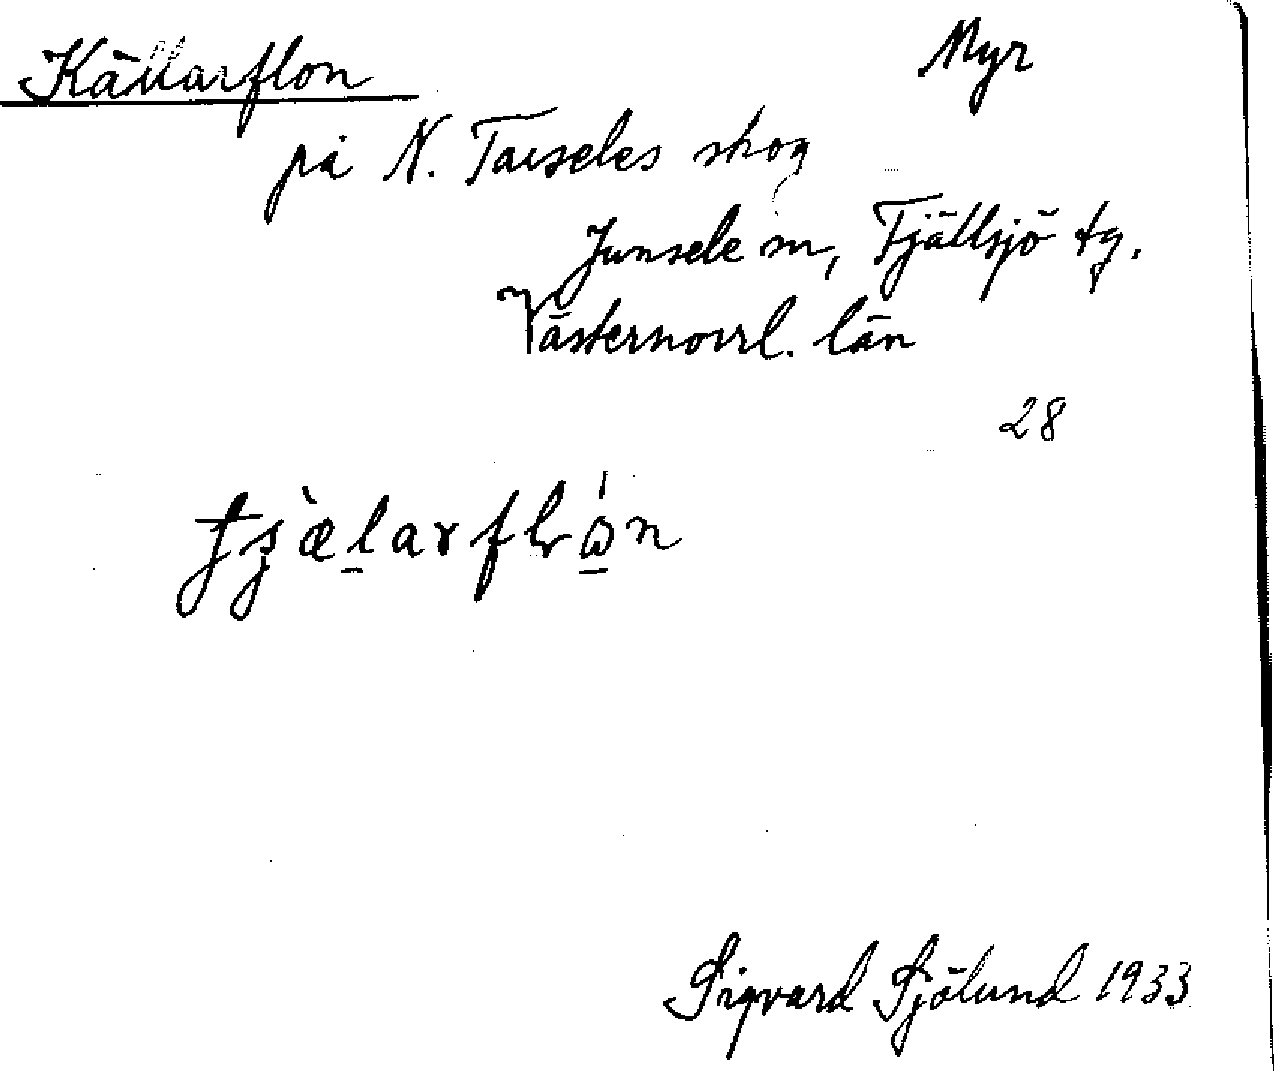 Källarflon Myr
på N. Tarseles skog
Junsele sn, Fjällsjö tg.
Västernorrl. län
28
Sigvard Sjölund 1933